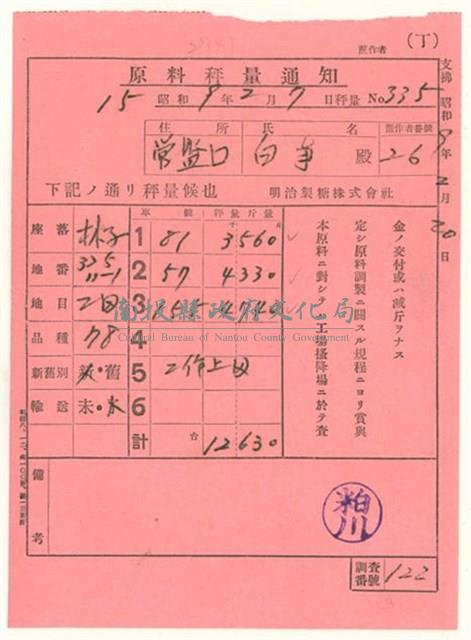 (丁)
蔗作者
支拂 昭和9年2月20日
原料秤量通知
15 昭和9年2月7日秤量 No.335
住所 氏名 蔗作者番號
營盤口 白 殿 269
下記ノ通リ秤量候也 明治製糖株式會社
座落 林子
地番 335
地目 2田
品種 78
新舊別 新・舊
輸送
車號 秤量斤量
1 81 3560
2 57 4330
3 4740
4
5 二作上田
6
計 台 12630
本原料ニ對シテハ工場搔降場ニ於テ査
定シ原料調製ニ關スル規程ニヨリ賞與
金ノ交付或ハ減斤ヲナス
備考
粕川
調査番號 122
南投縣政府文化局
Cultural Bureau of Nantou County Government